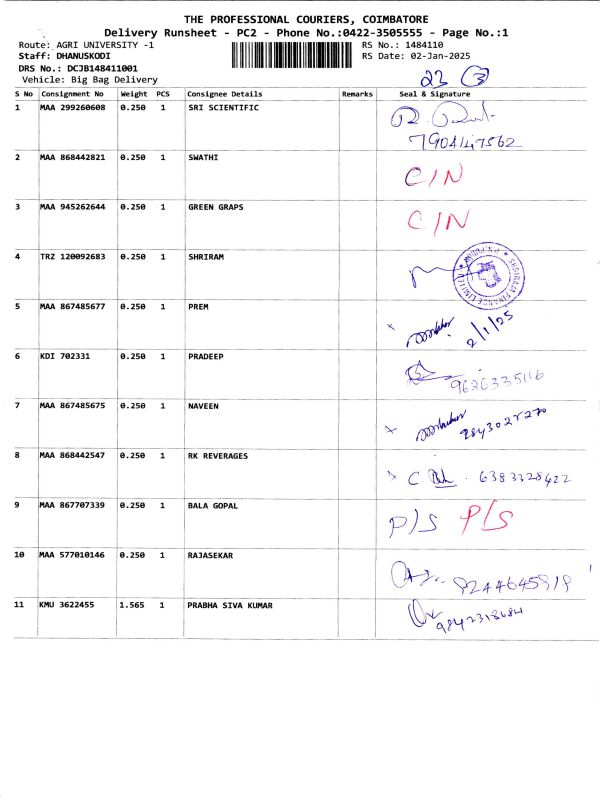 THE PROFESSIONAL COURIERS, COIMBATORE
Delivery Runsheet - PC2 - Phone No.:0422-3505555 - Page No.:1
Route: AGRI UNIVERSITY -1 RS No.: 1484110
Staff: DHANUSKODI RS Date: 02-Jan-2025
DRS No.: DCJB148411001
Vehicle: Big Bag Delivery 23 3
S No Consignment No Weight PCS Consignee Details Remarks Seal & Signature
1 MAA 299260608 0.250 1 SRI SCIENTIFIC
7904147562
2 MAA 868442821 0.250 1 SWATHI C/N
3 MAA 945262644 0.250 1 GREEN GRAPS C/N
4 TRZ 120092683 0.250 1 SHRIRAM SHRIRAM FINANCE LIMITED
5 MAA 867485677 0.250 1 PREM 2/1/25
6 KDI 702331 0.250 1 PRADEEP
9626335116
7 MAA 867485675 0.250 1 NAVEEN
8 MAA 868442547 0.250 1 RK REVERAGES 6383328422
9 MAA 867707339 0.250 1 BALA GOPAL P/S P/S
10 MAA 577010146 0.250 1 RAJASEKAR
11 KMU 3622455 1.565 1 PRABHA SIVA KUMAR
9842318684